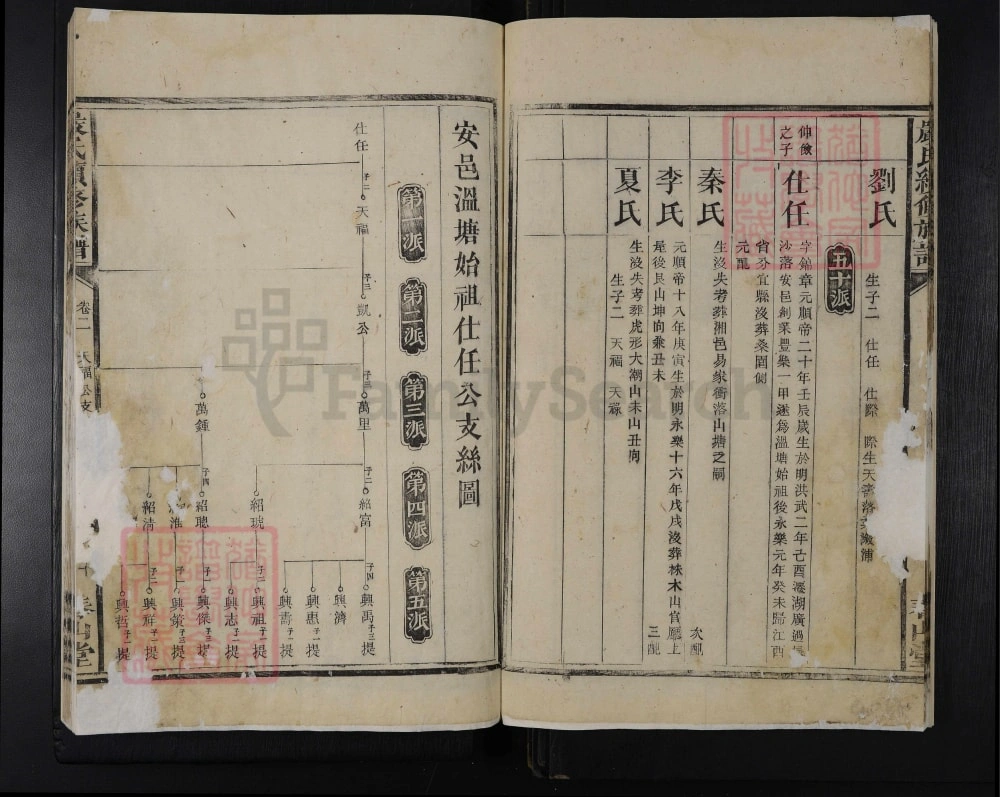 劉氏
生子二 仕任 仕際 際生天
五十派
仲儉之子
仕任
元順帝二十年壬辰歲生於明洪武二年己酉
沙落安邑創業豐樂一甲遂爲溫塘始祖後永樂元年癸未歸江西
省分宜縣沒葬桑園側
元配
秦氏
生沒失考葬湘邑易家衝落山塘乏嗣
次配
李氏
元順帝十八年庚寅生於明永樂十六年戊戌沒葬株木山官廳上
屋後艮山坤向兼丑未
三配
夏氏
生沒失考葬虎形大湖山未山丑向
生子二 天福 天祿
安邑溫塘始祖仕任公支絲圖
第一派
第二派
第三派
第四派
第五派
仕任
子二
天福
子三
凱公
子三
萬里
萬鍾
子二
紹富
紹琥
子四
紹聰
紹淮
紹清
子四
興禹 子三 提
興濟
興惠 子一 提
興壽 子二 提
子二
興祖 子一 提
興志 子一 提
子二
興傑 子三 提
子一
興策 子三 提
子二
興祥 子二 提
興哲 子一 提
卷二
天福公支
FamilySearch